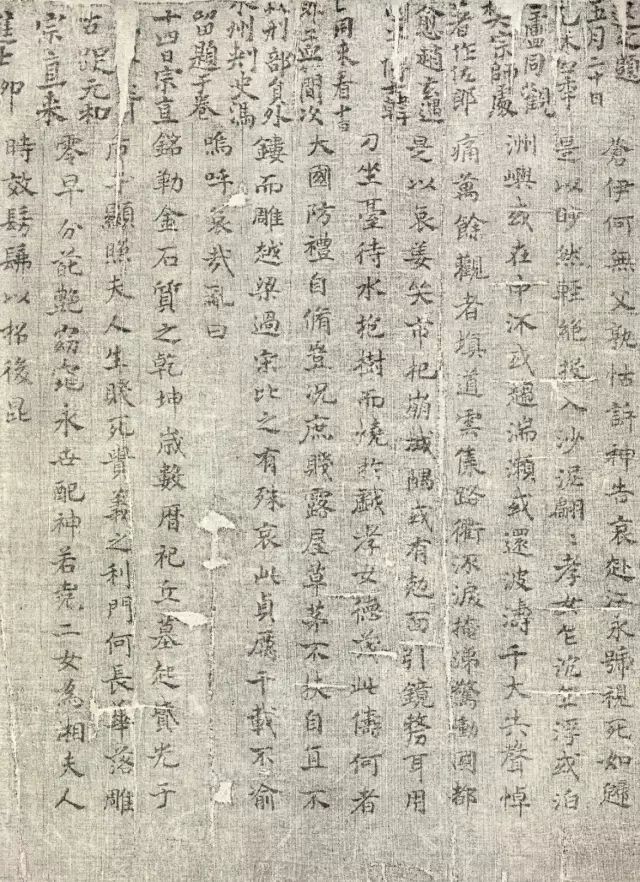 五月二十日
盧同觀
樊宗師處
著作佐郎
愈趙玄遇
韓
同來看十
間次
刑部員外
州刺史馮
留題于卷
十四日宗直
元和
宗直來
進士
蒼伊何無父孰怙訴神告哀赴江永號視死如歸
是以眇然輕絕投入沙泥翩〻孝女乍沉乍浮或泊
洲嶼或在中流或趨湍瀨或還波濤千夫共聲悼
痛萬餘觀者填道雲集路衢泣淚掩涕驚動國都
是以哀姜哭市杞崩城隅或有剋面引鏡剺耳用
刀坐臺待水抱樹而燒於戲孝女德茂此儔何者
大國防禮自脩豈況庶賤露屋草茅不扶自直不
鏤而雕越梁過宋比之有殊哀此貞厲千載不渝
嗚呼哀哉亂曰
銘勒金石質之乾坤歲數曆祀丘墓起墳光于
后土顯照夫人生賤死貴義之利門何長華落雕
零早分葩艷窈窕永世配神若堯二女為湘夫人
時效髣髴以招後昆